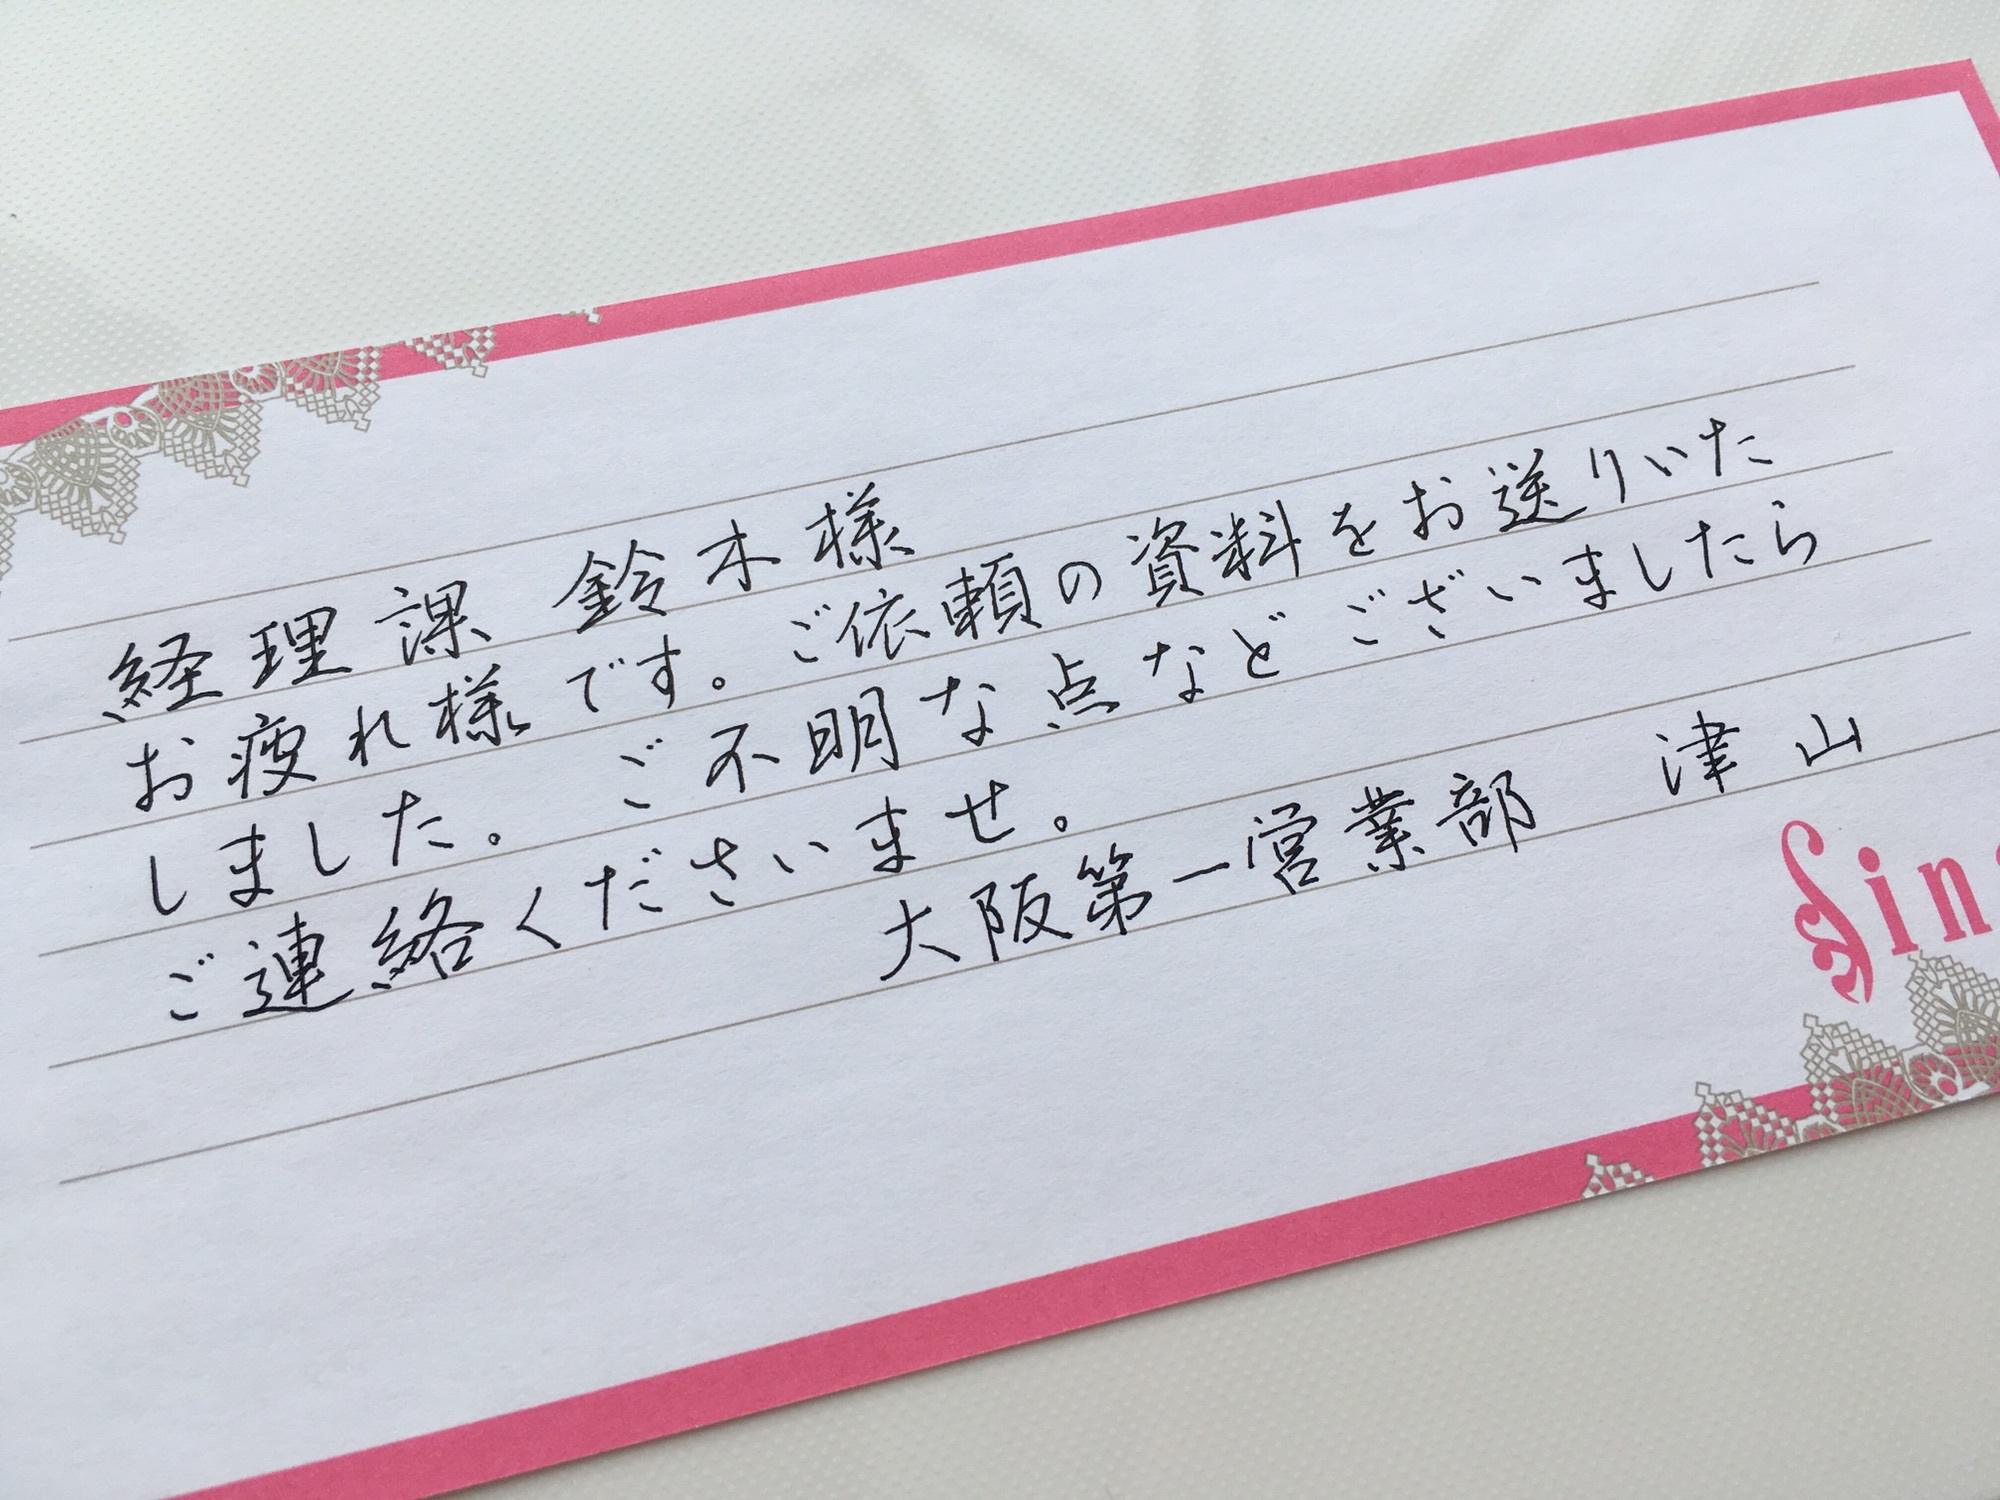 経理課 鈴木様
お疲れ様です。ご依頼の資料をお送りいた
しました。 ご不明な点などございましたら
ご連絡くださいませ。
大阪第一営業部 津山